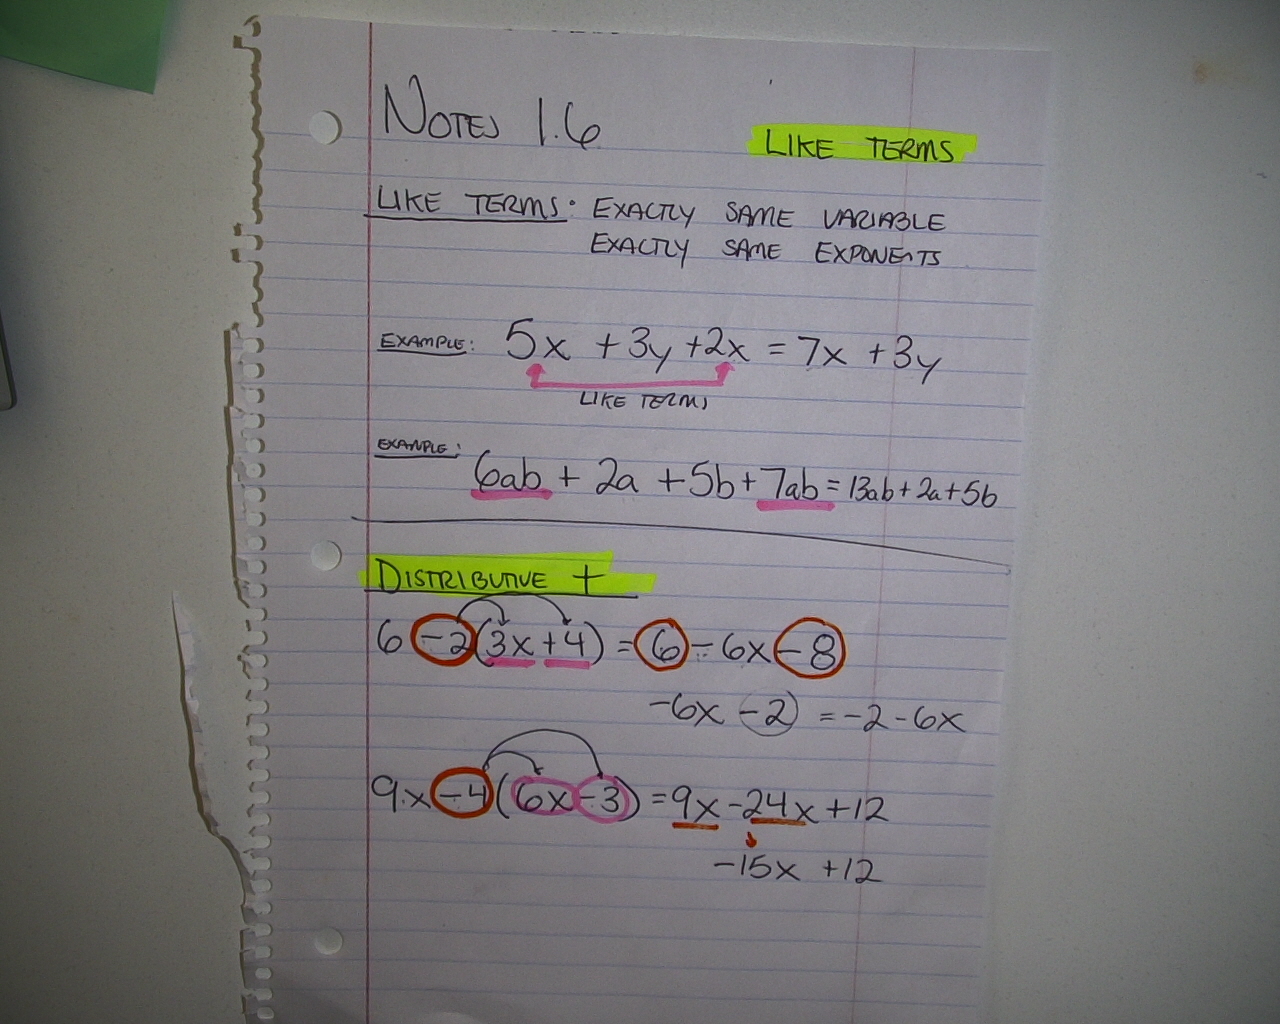 NOTES 1.6
LIKE TERMS
LIKE TERMS: EXACTLY SAME VARIABLE
EXACTLY SAME EXPONENTS
EXAMPLE: 5x + 3y + 2x = 7x + 3y
LIKE TERMS
EXAMPLE:
6ab + 2a + 5b + 7ab = 13ab + 2a + 5b
DISTRIBUTIVE +
6 -2(3x + 4) = 6 - 6x - 8
-6x - 2 = -2 - 6x
9x -4(6x - 3) = 9x - 24x + 12
-15x + 12